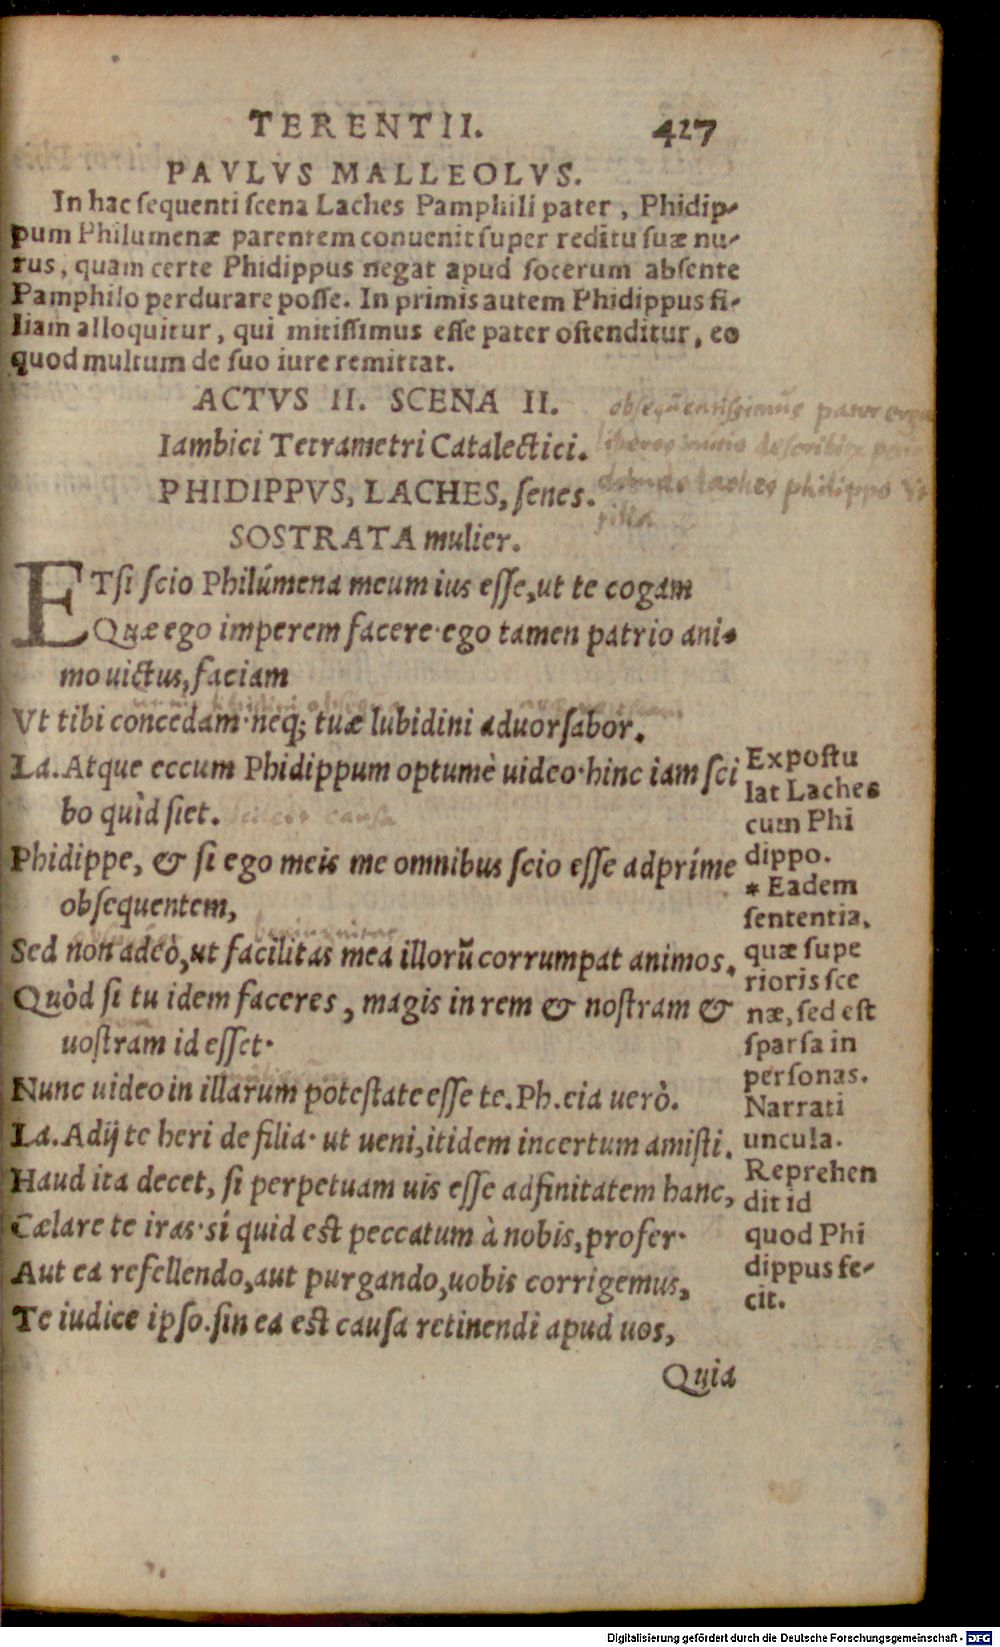 TERENTII. 427
PAVLVS MALLEOLVS.
In hac sequenti scena Laches Pamphili pater, Phidip-
pum Philumenæ parentem conuenit super reditu suæ nu-
rus, quam certe Phidippus negat apud socerum absente
Pamphilo perdurare posse. In primis autem Phidippus fi-
liam alloquitur, qui mitissimus esse pater ostenditur, eo
quod multum de suo iure remittat.
ACTVS II. SCENA II.
Iambici Tetrametri Catalectici.
PHIDIPPVS, LACHES, senes.
SOSTRATA mulier.
obsequentissimus pater erga
liberos
laches philippo
filia
ETsi scio Philúmena meum ius esse, ut te cogam
Quæ ego imperem facere· ego tamen patrio ani-
mo uictus, faciam
Vt tibi concedam· neq; tuæ lubidini aduorsabor.
La. Atque eccum Phidippum optumè uideo· hinc iam sci
bo quìd siet.
causa
Phidippe, & si ego meis me omnibus scio esse adpríme
obsequentem,
Sed non adeò, ut facilitas mea illorū corrumpat animos.
Quòd si tu idem faceres, magis in rem & nostram &
uostram id esset·
Nunc uideo in illarum potestate esse te. Ph. eia uerò.
La. Adij te heri de filia· ut ueni, itidem incertum amisti.
Haud ita decet, si perpetuam uis esse adfinitatem hanc,
Cælare te iras· si quid est peccatum à nobis, profer·
Aut ea refellendo, aut purgando, uobis corrigemus,
Te iudice ipso. sin ea est causa retinendi apud uos,
Quia
Expostu
lat Laches
cum Phi
dippo.
* Eadem
sententia,
quæ supe
rioris sce
næ, sed est
sparsa in
personas.
Narrati
uncula.
Reprehen
dit id
quod Phi
dippus fe-
cit.
Digitalisierung gefördert durch die Deutsche Forschungsgemeinschaft - DFG